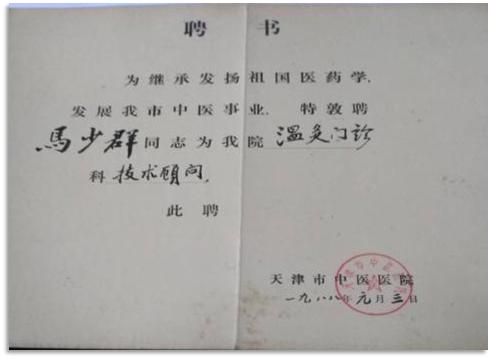 聘书
为继承发扬祖国医药学，
发展我市中医事业，特敦聘
馬少群同志为我院温灸门诊
科技术顾问，
此聘
天津市中医医院
一九八八年元月三日